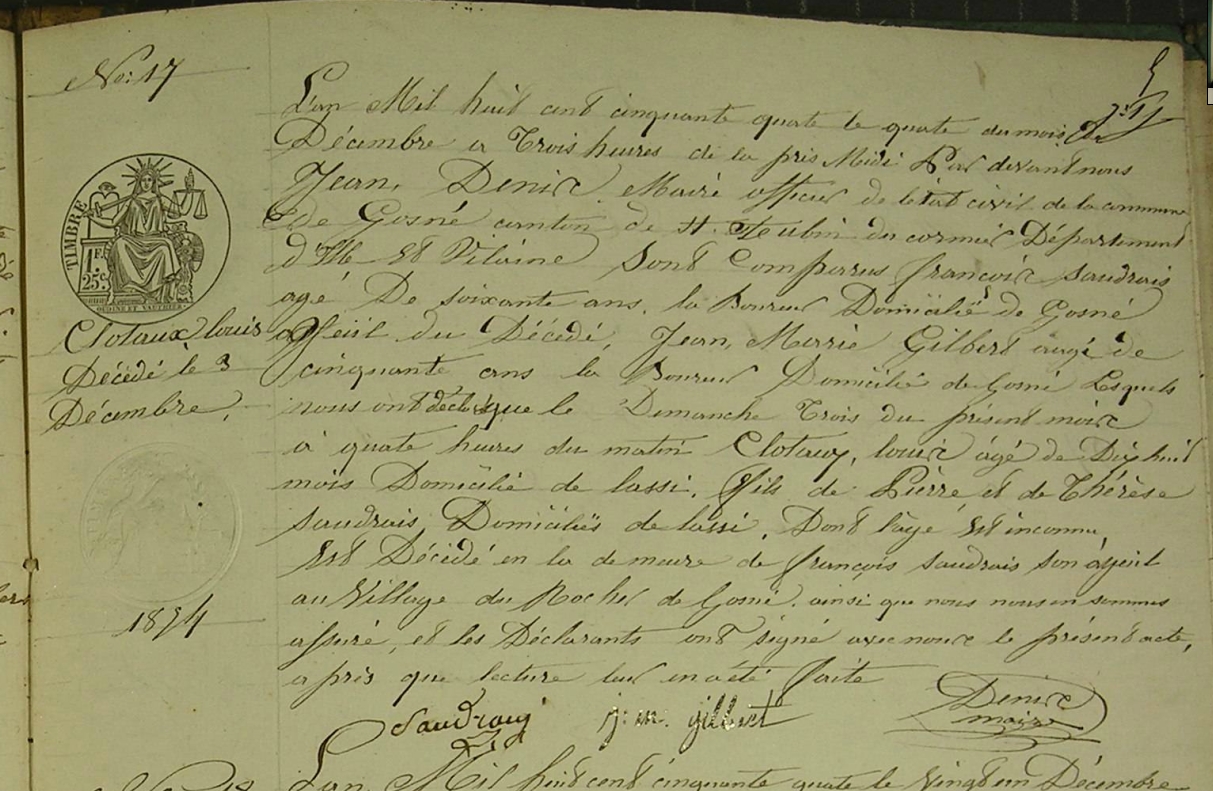 No: 17
L'an Mil huit cent cinquante quate le quate du mois de
Décembre a Trois heures de la près Midi Par devant nous
Jean, Denis Maire officier de létat civil de la commune
de Gosné canton de St. Aubin du cormier Département
d'Ille et Vilaine Sont Comparus françois saudrais
agé De soixante ans, la Boureur Domicilié de Gosné
ayeuil du Décédé, Jean, Marie Gilbert augé de
cinquante ans la Boureur Domicilié de Gosné Lesquels
nous ont déclaré que le Dimanche Trois du présent mois
à quate heures du matin Clotaux, louis âgé de Dix huit
mois Domicilié de lassi, fils de Pierre et de Thérèse
saudrais, Domiciliés de lassi, Dont l'âge Est inconnu,
Est Décédé en la de meure de françois saudrais son ayeuil
au Village du Rocher de Gosné, ainsi que nous nous en sommes
assuré, et les Déclarants ont signé avec nous le présent acte,
a près que lecture leur en a été faite
Saudrais j. m. gilbert Denis
maire
TIMBRE
1F.
25c
OUDINE ET VAUTHIER
Clotaux, louis
Décédé le 3
Décembre,
1854
L'an Mil huit cent cinquante quate le vingt un Décembre